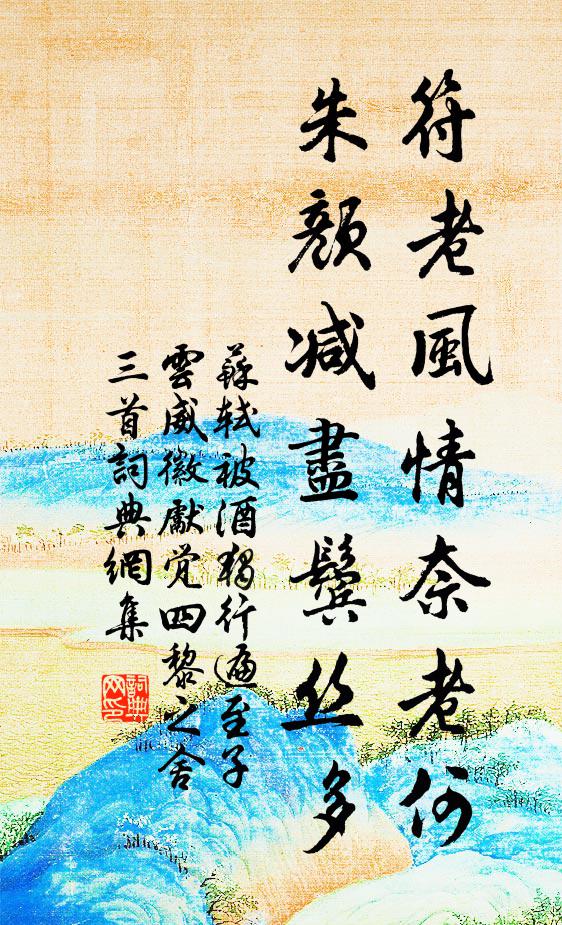 符老風情奈老何
朱顏减盡鬓丝多
蘇軾被酒獨行遍至子
雲威徽獻觉四黎之舍
三首詞典網集
詞典
网印